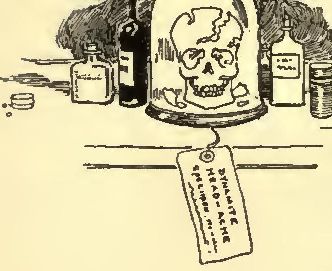 DYNAMITE
HEAD-ACHE
SPECIMEN